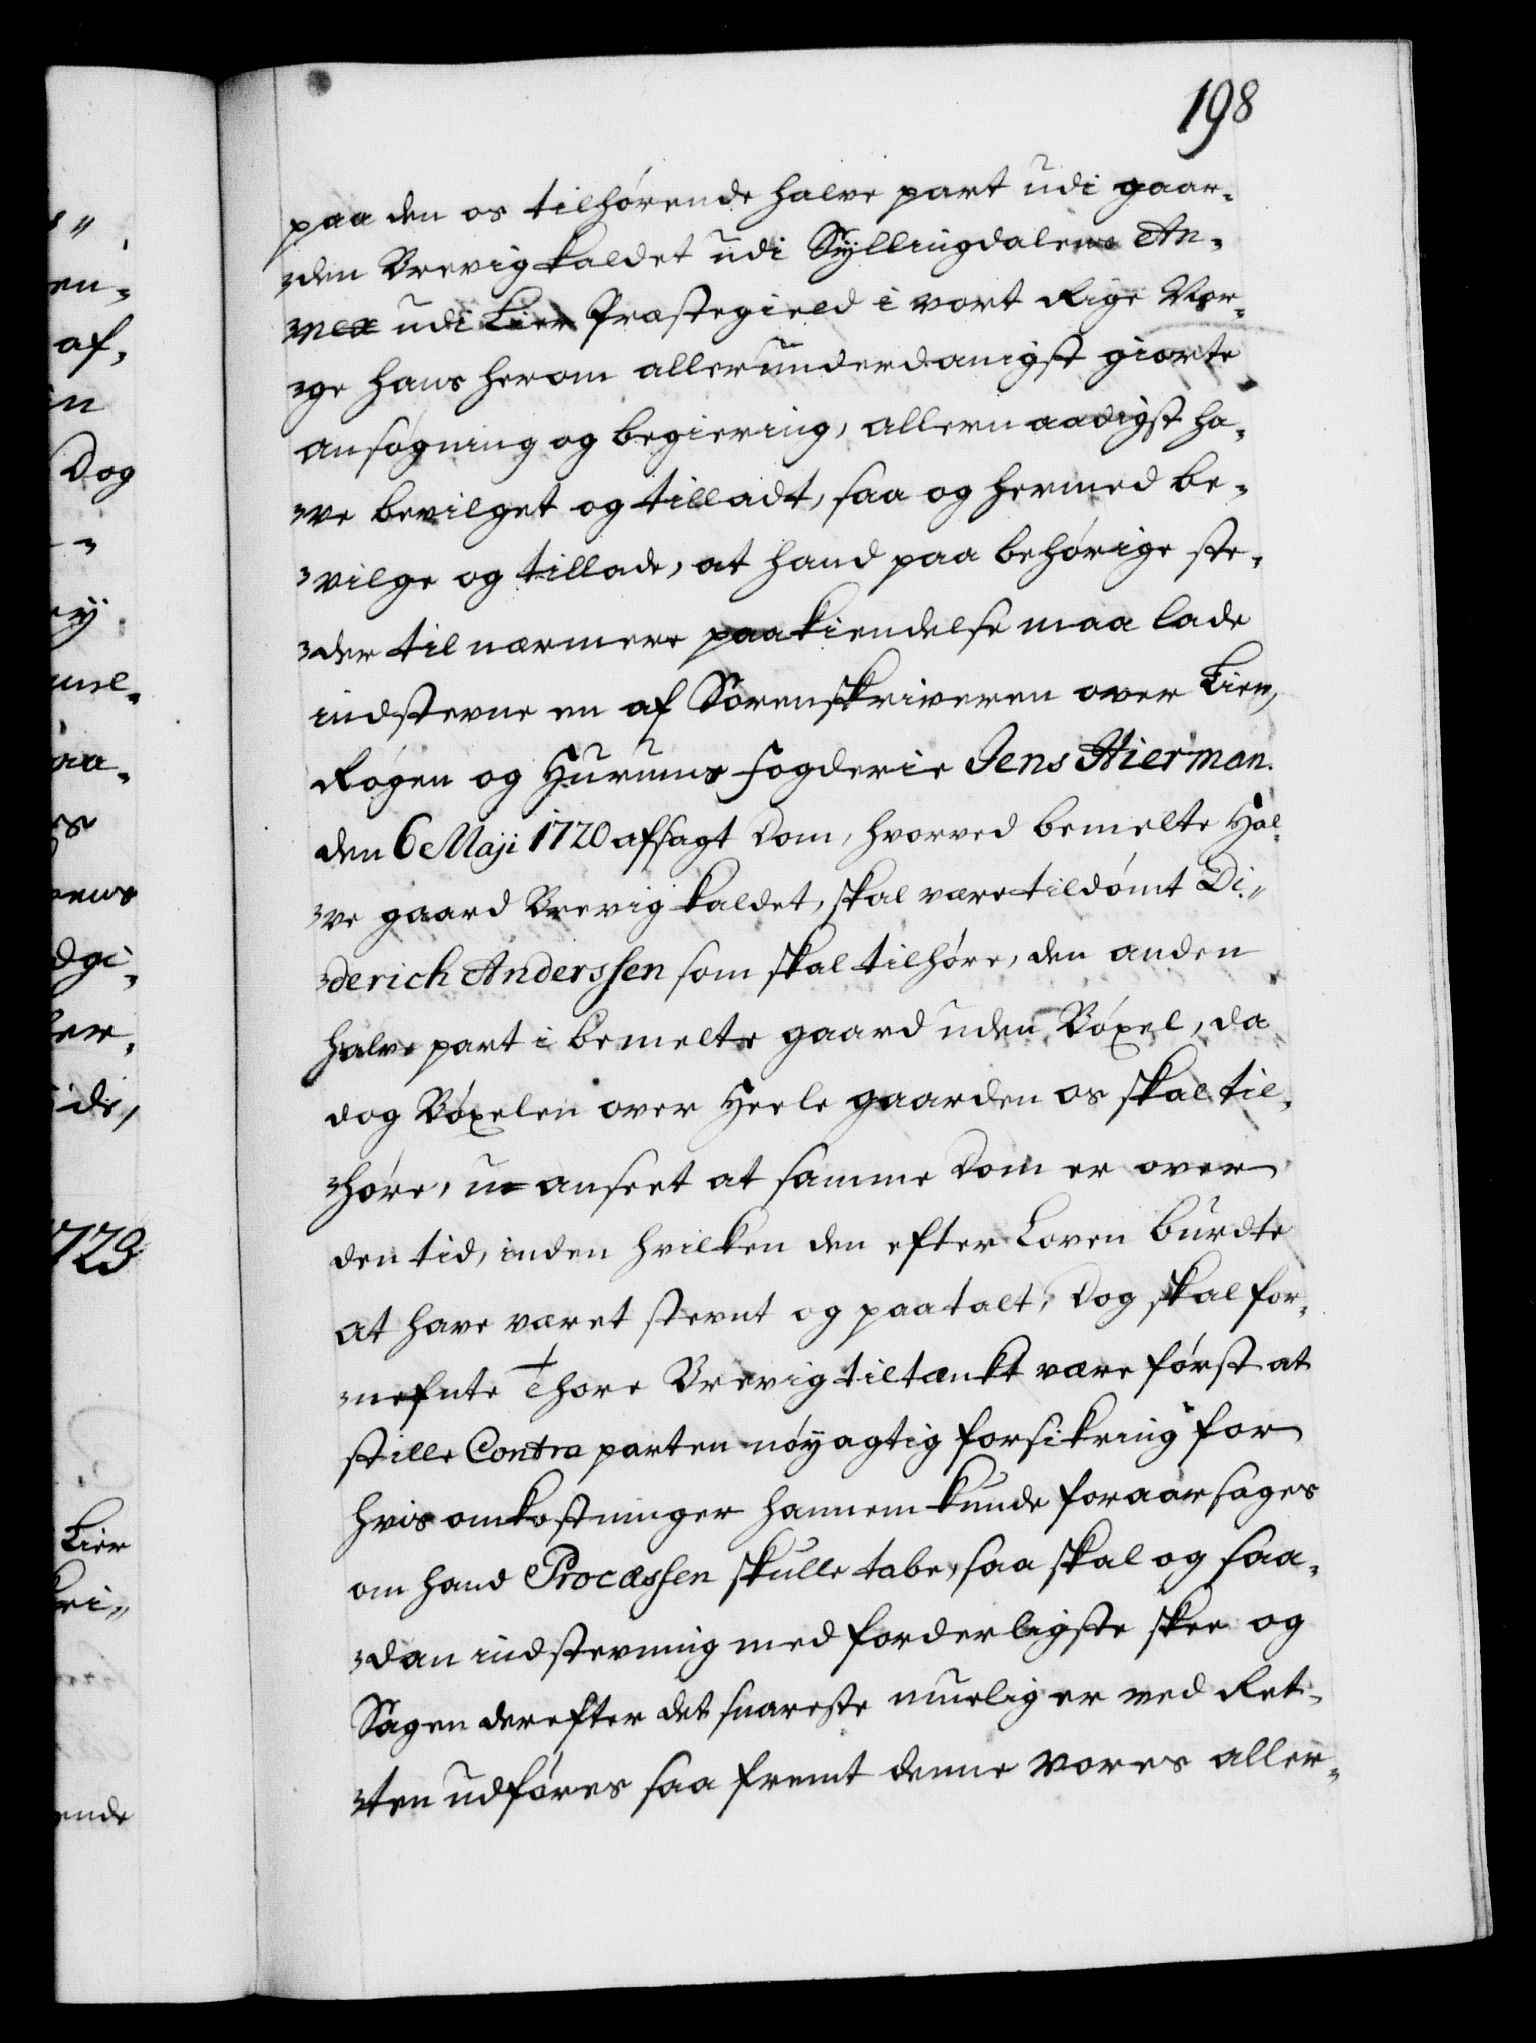 198
paa den os tilhørende halve part udi gaar-
den Brevig kaldet udi Syllingdalens An-
nex udi Lier Præstegield i vort Rige Nor-
ge hans herom allerunderdanigst giorte
ansøgning og begiering, allernaadigst ha-
ve bevilget og tilladt, saa og hermed be-
vilge og tillade, at hand paa behørige ste-
der til nærmere paakiendelse maa lade
indstevne en af Sorenskriveren over Lier,
Røgen og Hurums fogderie Jens Hierman
den 6 Maji 1720 afsagt Dom, hvorved bemelte Hal-
ve gaard Brevig kaldet, skal være tildømt Di-
derich Anderssen som skal tilhøre, den anden
halve part i bemelte gaard uden Bøxel, da
dog Bøxelen over Heele gaarden os skal til-
høre, u-anseet at samme Dom er over
den tid, inden hvilken den efter Loven burdte
at have været stevnt og paatalt, Dog skal for-
nefnte Thore Brevig tiltænkt være først at
stille Contraparten nøyagtig forsikring for
hvis omkostninger hannem kunde foraarsages
om hand Processen skulle tabe, saa skal og saa-
dan indstevning med forderligste skee og
Sagen derefter det snareste mueligt er ved Ret-
ten udføres saa fremt denne vores aller-
en-
af,
Dog
aa-
dgi-
er,
ide,
1723
Lier
kri-
ende